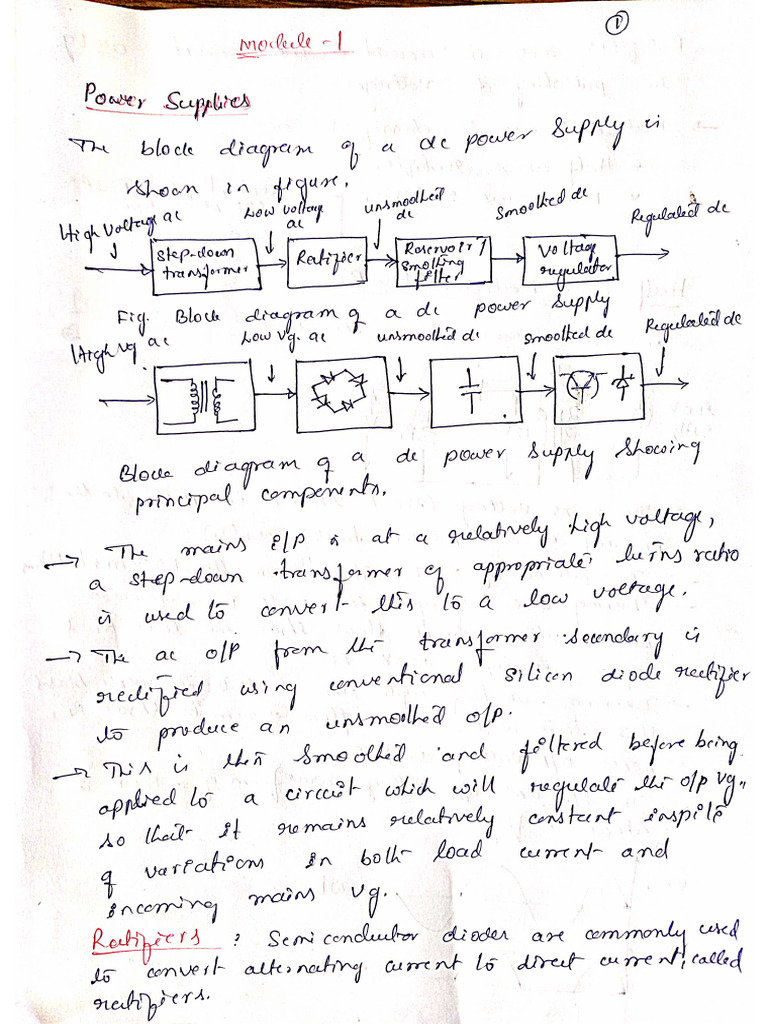 1
Module - 1
Power Supplies
The block diagram of a dc power supply is
shown in figure.
High voltage ac
Low voltage ac
unsmoothed dc
Smoothed dc
Regulated dc
Step-down transformer
Rectifier
Reservoir / smoothing filter
Voltage regulator
Fig. Block diagram of a dc power supply
High vg ac
Low vg. ac
unsmoothed dc
smoothed dc
Regulated dc
Block diagram of a dc power supply showing
principal components.
→ The mains i/p is at a relatively high voltage,
a step-down transformer of appropriate turns ratio
is used to convert this to a low voltage.
→ The ac o/p from the transformer secondary is
rectified using conventional silicon diode rectifier
to produce an unsmoothed o/p.
→ This is then smoothed and filtered before being
applied to a circuit which will regulate the o/p vg.,
so that it remains relatively constant inspite
of variations in both load current and
incoming mains vg.
Rectifiers : Semiconductor diodes are commonly used
to convert alternating current to direct current, called
rectifiers.